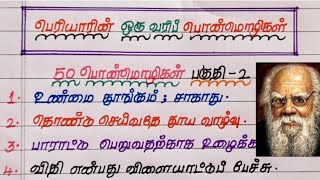 பெரியாரின் ஒரு வரிப் பொன்மொழிகள்
50 பொன்மொழிகள் பகுதி - 2
1. உண்மை தூங்கும் ; சாகாது.
2. தொண்டு செய்வதே தூய வாழ்வு.
3. பாராட்டு பெறுவதற்காக உழைக்க
4. விதி என்பது விளையாட்டுப் பேச்சு.